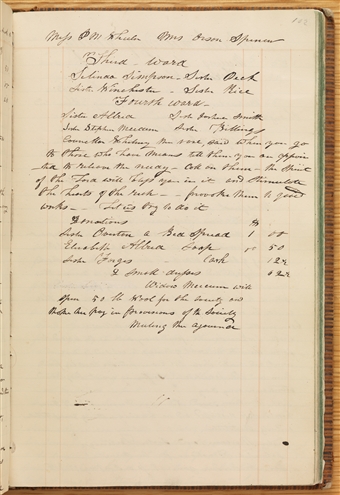 Miss P M Wheeler Mrs Orson Spencer
Third - ward
Selinda Simpson - Sister Peck
Sister Winchester - Sister Rice
Fourth ward -
Sister Allred Sister Joshua Smith
Sister Stephen Sister Billings
Councillor Whitney then rose, said when you go
to those who have means tell them you are
to relieve the needy - call on them - the Spirit
of the Lord will help you in it and stimulate
the hearts of the rich - provoke them to good
works - Let us try to do it
Donations $
Sister a Bed Spread 1 00
Elizabeth Allred Soap 50
Sister cash 12½
2 Small dippers 62½
Widow will
spin 50 lb Wool for the Society and
take her pay in provisions of the Society
Meeting then adjourned